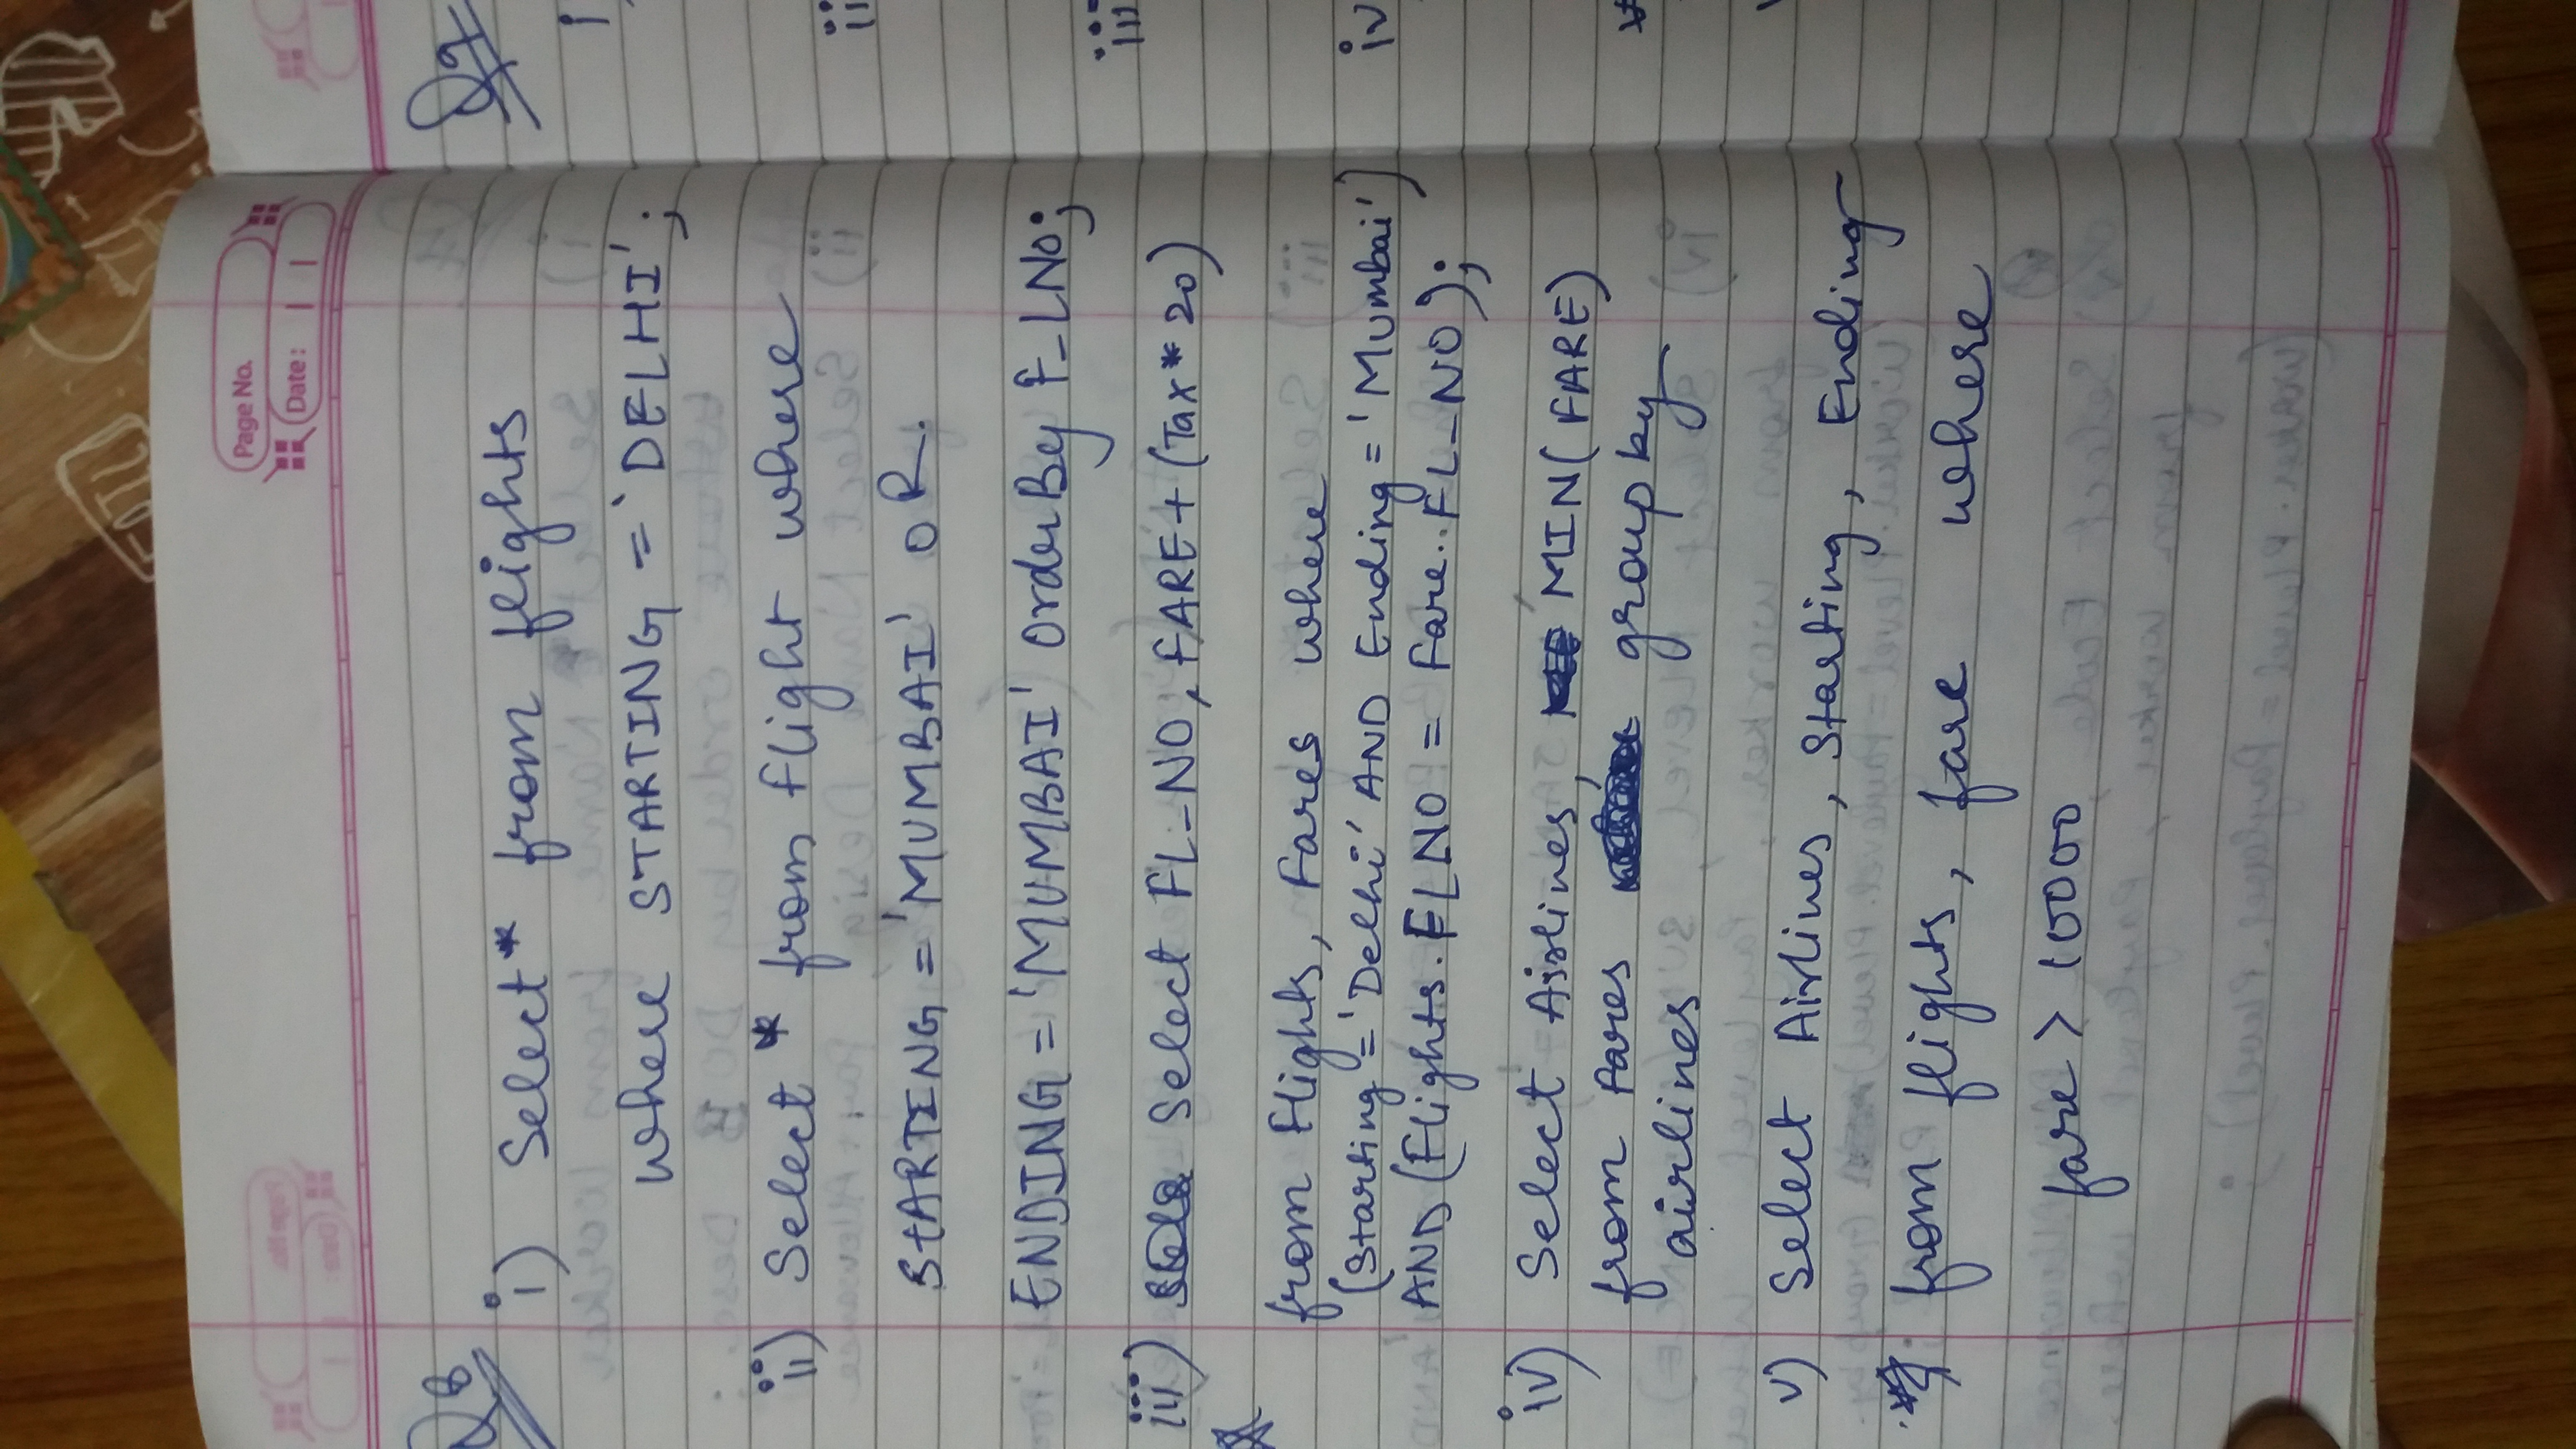 Page No.
Date:
Q8
i) Select * from flights
where STARTING = 'DELHI';
ii) Select * from flight where
STARTING = 'MUMBAI' OR.
ENDING = 'MUMBAI' Order By F_LNO;
iii) Select FL_NO, FARE + (Tax * 20)
from Flights, Fares where
(Starting = 'Delhi' AND Ending = 'Mumbai')
AND (Flights.FLNO = Fare..FL_NO);
iv) Select Airlines, MIN(FARE)
from Fares group by
airlines
v) Select Airlines, Starting, Ending
from flights, fare where
fare > 10000
Q9
i
ii
iii
iv